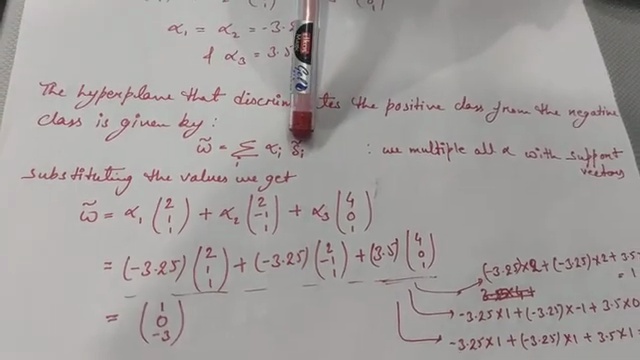 α₁ = α₂ = -3.2
& α₃ = 3.5
The hyperplane that discriminates the positive class from the negative
class is given by:
w̃ = Σᵢ αᵢ s̃ᵢ : we multiple all α with support vectors
substituting the values we get
w̃ = α₁ (2 1 1) + α₂ (2 -1 1) + α₃ (4 0 1)
= (-3.25) (2 1 1) + (-3.25) (2 -1 1) + (3.5) (4 0 1)
= (1 0 -3)
(-3.25)×2 + (-3.25)×2 + 3.5
= 1
-3.25×1 + (-3.25)×-1 + 3.5×0
-3.25×1 + (-3.25)×1 + 3.5×1